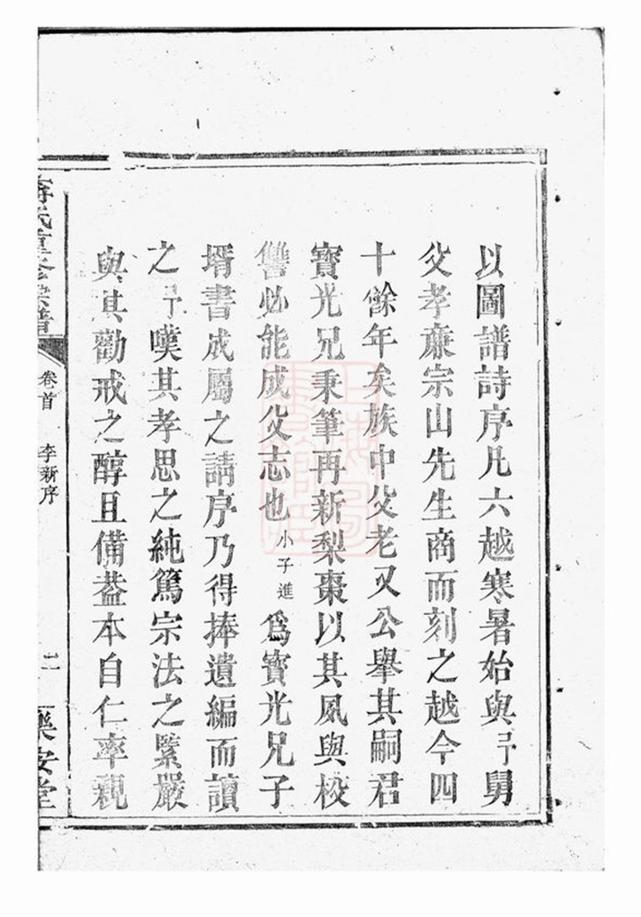 以圖譜詩序凡六越寒暑始與予舅
父孝亷宗山先生商而刻之越今四
十餘年矣族中父老又公舉其嗣君
寳光兄秉筆再新梨棗以其夙與校
讐必能成父志也小子進爲寳光兄子
壻書成屬之請序乃得捧遺編而讀
之予嘆其孝思之純篤宗法之緊嚴
與其勸戒之醇且備葢本自仁率親
氏重修宗譜
卷首
李新序
二
樂安堂